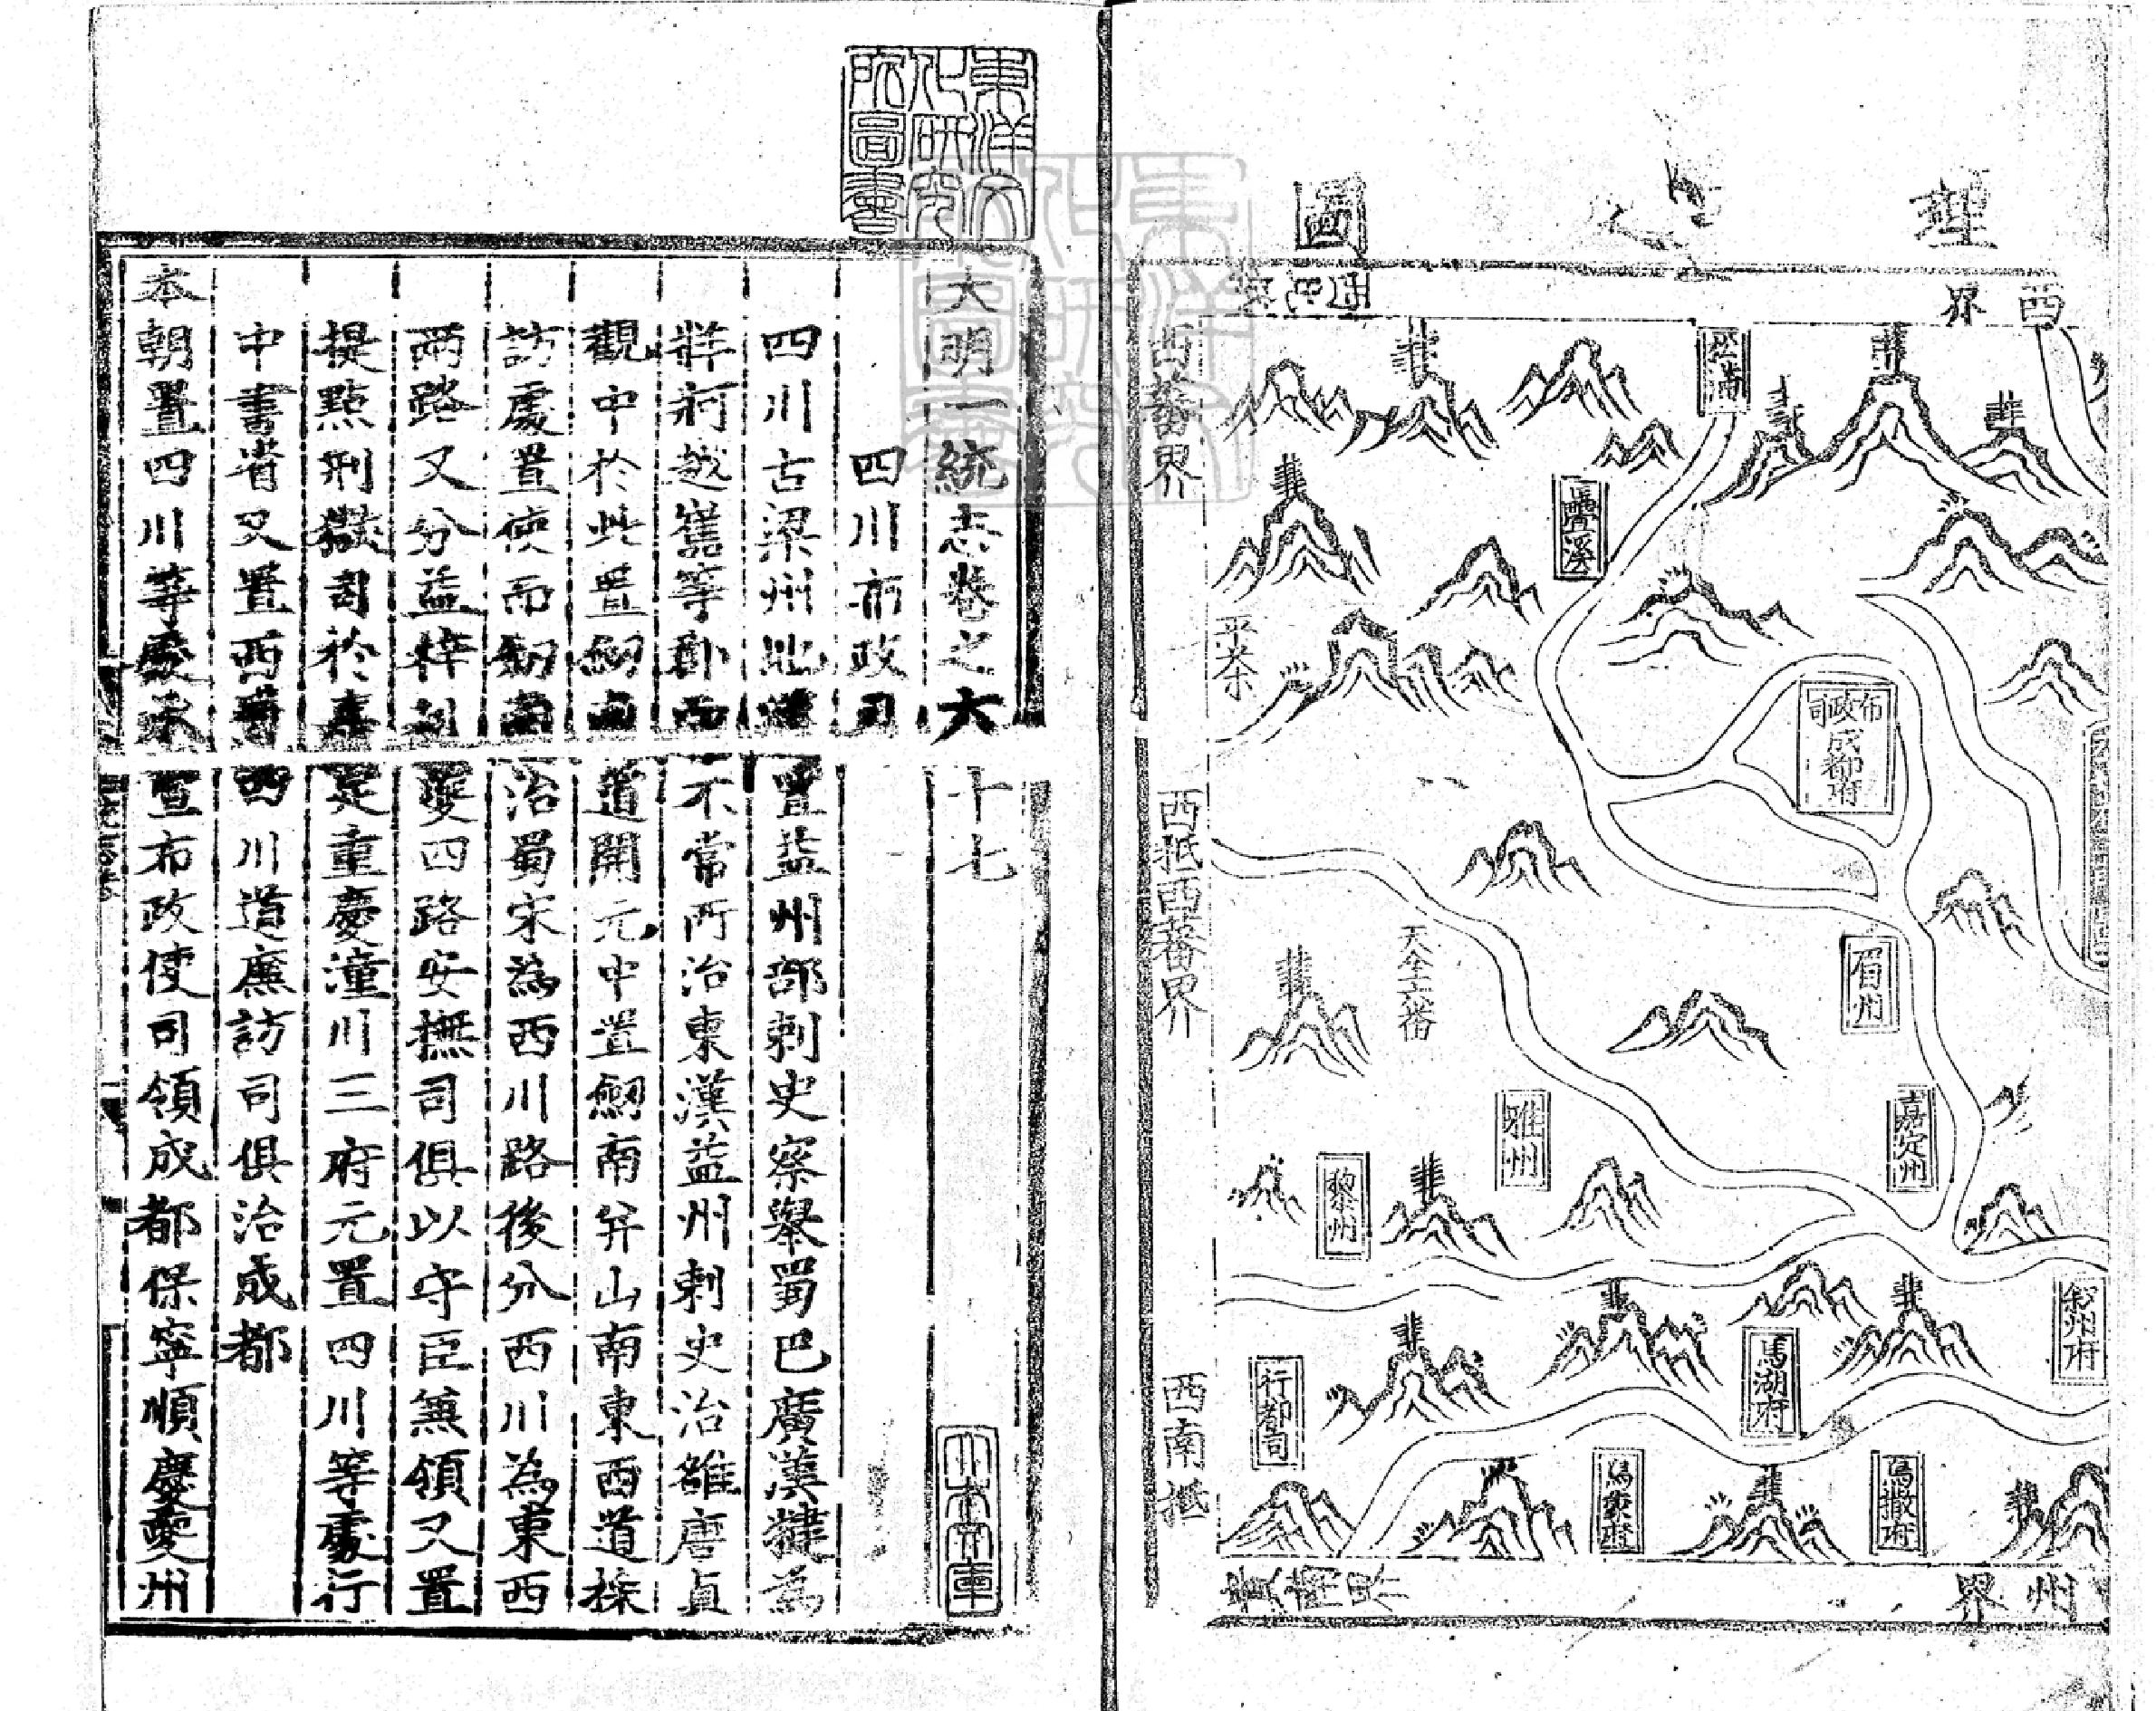 理
之
圖
西
界
松潘
疊溪
西蕃界
平茶
布政司
成都府
西抵西蕃界
天全六番
眉州
嘉定州
雅州
黎州
敘州府
馬湖府
行都司
西南抵
烏蒙府
烏撒府
州
界
東洋文
化研究
院圖書
大明一統志卷之六十七
四川布政司
四川古梁州地漢置益州部刺史察舉蜀巴廣漢犍為
牂牁越嶲等郡而不常所治東漢益州刺史治雒唐貞
觀中於此置劒南道開元中置劒南并山南東西道採
訪處置使而劒南治蜀宋為西川路後分西川為東西
兩路又分益梓利夔四路安撫司俱以守臣兼領又置
提點刑獄司於嘉定重慶潼川三府元置四川等處行
中書省又置西蜀四川道廉訪司俱治成都
本朝置四川等處承宣布政使司領成都保寧順慶夔州